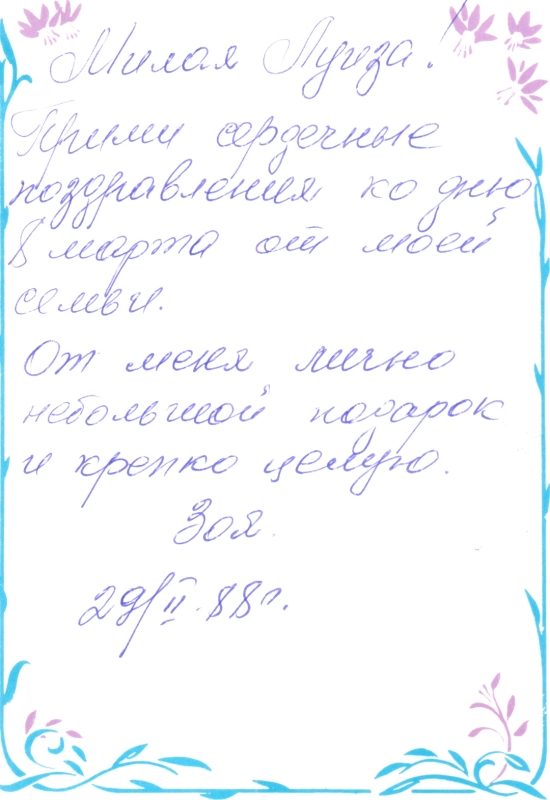 Милая Луиза!
Прими сердечные
поздравления ко дню
8 марта от моей
семьи.
От меня лично
небольшой подарок
и крепко целую.
Зоя.
29/II.88г.